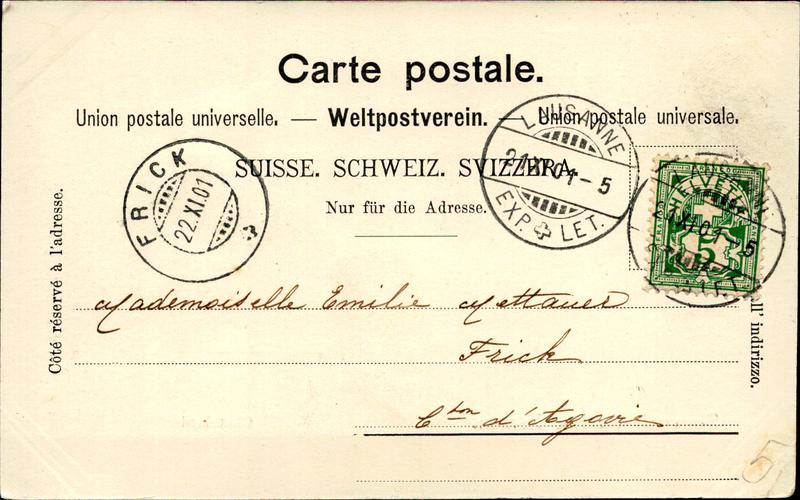 Carte postale.
Union postale universelle. — Weltpostverein. — Union postale universale.
SUISSE. SCHWEIZ. SVIZZERA.
Nur für die Adresse.
FRICK
22.XI.01
LAUSANNE
21.XI.01-5
EXP. LET.
HELVETIA
5
21.XI.01-5
Côté réservé à l'adresse.
all' indirizzo.
Mademoiselle Emilie Mettauer
Frick
Cton d'Argovie
5